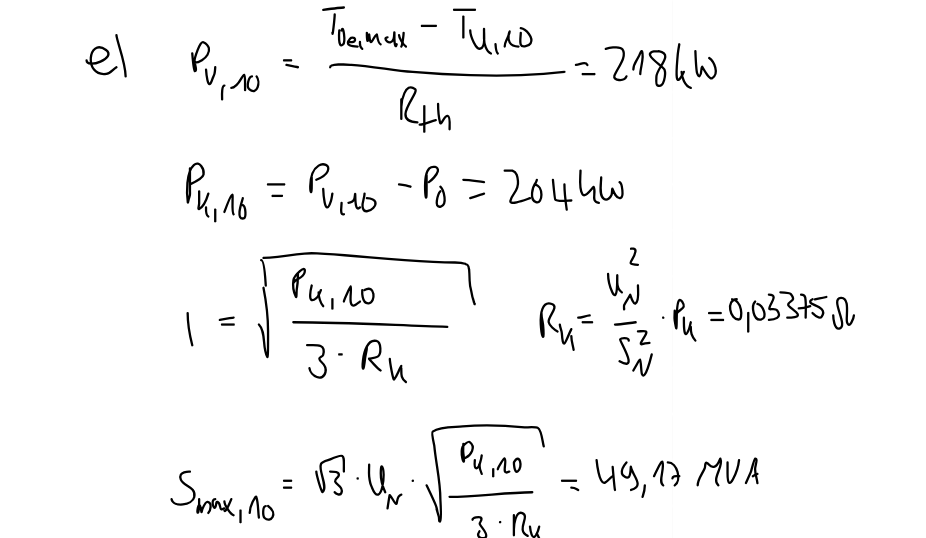 e) P_{V,10} = \frac{T_{Oe,max} - T_{U,10}}{R_{th}} = 218 kW
P_{K,10} = P_{V,10} - P_0 = 204 kW
I = \sqrt{\frac{P_{K,10}}{3 \cdot R_K}} R_K = \frac{U_N^2}{S_N^2} \cdot P_K = 0,03375 Ω
S_{max,10} = \sqrt{3} \cdot U_N \cdot \sqrt{\frac{P_{K,10}}{3 \cdot R_K}} = 49,17 MVA